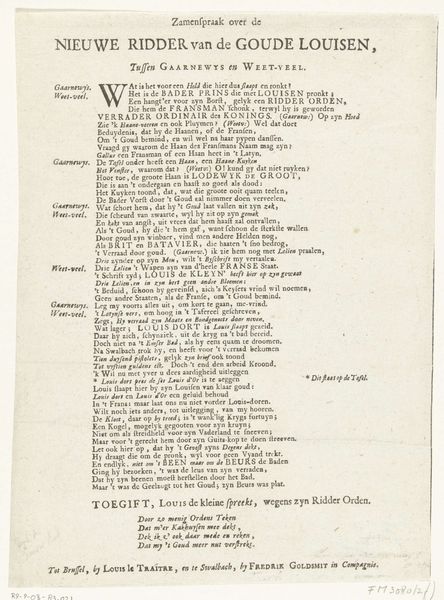 Zamenspraak over de
NIEUWE RIDDER van de GOUDE LOUISEN,
Tussen GAARNEWYS en WEET-VEEL.
Gaarnewys. WAt is het voor een Held die hier dus staapt en ronkt?
Weet-veel. Het is de BADER PRINS die met LOUISEN pronkt;
Een hangt'er voor zyn Borst, gelyk een RIDDER ORDEN,
Die hem de FRANSMAN schonk, terwyl hy is geworden
VERRADER ORDINAIR des KONINGS. (Gaarnew:) Op zyn Hoed
Zie 'k Haane-veeren en ook Pluymen? (Weetv:) Wel dat doet
Beduydenis, dat hy de Haanen, of de Fransen,
Om 't Goud bemind, en wil wel na haar pypen danssen.
Vraagd gy waarom de Haan des Fransmans Naam mag zyn?
Gallus een Fransman of een Haan heet in 't Latyn.
Gaarnewys. De Tafel onder heeft een Haan, een Haane-Kuyken
Het Venster, waarom dat? (Weetv:) O! kund gy dat niet ruyken?
Hoor toe, de groote Haan is LODEWYK DE GROOT,
Die is aan 't ondergaan en haast zo goed als dood:
Het Kuyken toond, dat, wat die groote ooit quam teelen,
De Bader Vorst door 't Goud zal nimmer doen verveelen.
Gaarnewys. Wat schort hem, dat hy 't Goud laat vallen uit zyn zak,
Weet-veel. Die scheurd van zwaarte, wyl hy zit op zyn gemak
En bekt van angst, uit vrees dat hem haast zal ontvallen,
Als 't Goud, hy die 't hem gaf, want schoon de sterkste wallen
Door goud zyn winbaar, vind men andere Helden nog,
Als BRIT en BATAVIER, die haaten 't sno bedrog,
't Verraad door goud. (Gaarnew:) ik zie hem nog met Lelien praalen,
Drie zynder op zyn Mou, wilt 't Byschrift my vertaalen.
Weet-veel. Drie Lelien 't Wapen zyn van d'heele FRANSE Staat.
't Schrift zyd, LOUIS de KLEYN' heeft hier op zyn gewaat
Drie Lelien, en in zyn hert geen andre Bloemen:
't Beduid, schoon hy geveinsd, zich 's Keysers vrind wil noemen,
Geen andre Staaten, als de Franse, om 't Goud bemind.
Gaarnewys. Leg my voorts alles uit, om kort te gaan, me-vrind.
Weet-veel. 't Latynse vers, om hoog in 't Tafereel geschreven,
Zegt, Hy verraad zyn Maats en Bondgenoots door neven.
Wat lager, LOUIS DORT is Louis slaapt gezeid.
Daar hy zich, schynziek, uit de kryg na 't bad bereid.
Doch niet na 't Emser Bad, als hy eens quam te droomen.
Na Swalbach trok hy, en heeft voor 't verraad bekomen
Tien duysend pistolets, gelyk zyn brief ook toond
Tot vyftien guldens elk. Doch 't end den arbeid Kroond.
'k Wil nu met yver u dees aardigheid uitleggen
* Louis dort pres de ses Louis d'Or is te zeggen * Dit staat op de Tafel.
Louis slaapt hier by zyn Louisen van klaar goud:
Louis dort en Louis d'Or een geluid behoud
In 't Frans: maar laat ons nu niet vorder Louis-doren.
Wilt noch iets anders, tot uitlegging, van my hooren.
De Kloot, daar op hy treed, is 't wankelig Krygs fortuyn;
Een Kogel, mogelyk gegooten voor zyn kruyn;
Niet om als streidheld voor zyn Vaderland te sneeven;
Maar voor 't gerecht hem door zyn Guits-kop te doen streeven.
Let ook hier op, dat hy 't Gevest zyns Degens dekt,
Hy draagt die om de pronk, wyl voor geen Vyand trekt.
En endlyk, niet om 't BEEN maar om de BEURS de Baden
Ging hy bezoeken, 't was de leus van zyn verraden,
Dat hy zyn beenen moest herstellen door het Bad.
Maar 't was de Geelzugt tot het Goud; zyn Beurs was plat.
TOEGIFT, LOUIS de kleine spreekt, wegens zyn Ridder Orden.
Door zo menig Ordens Teken
Dat m'er Kakhuysen mee dekt,
Dek ik z' ook daar mede en reken,
Dat my 't Goud meer nut verstrekt.
Tot Brussel, by LOUIS le TRAÎTRE, en te Swalbach, by FREDRIK GOLDSMIT in Compagnie.